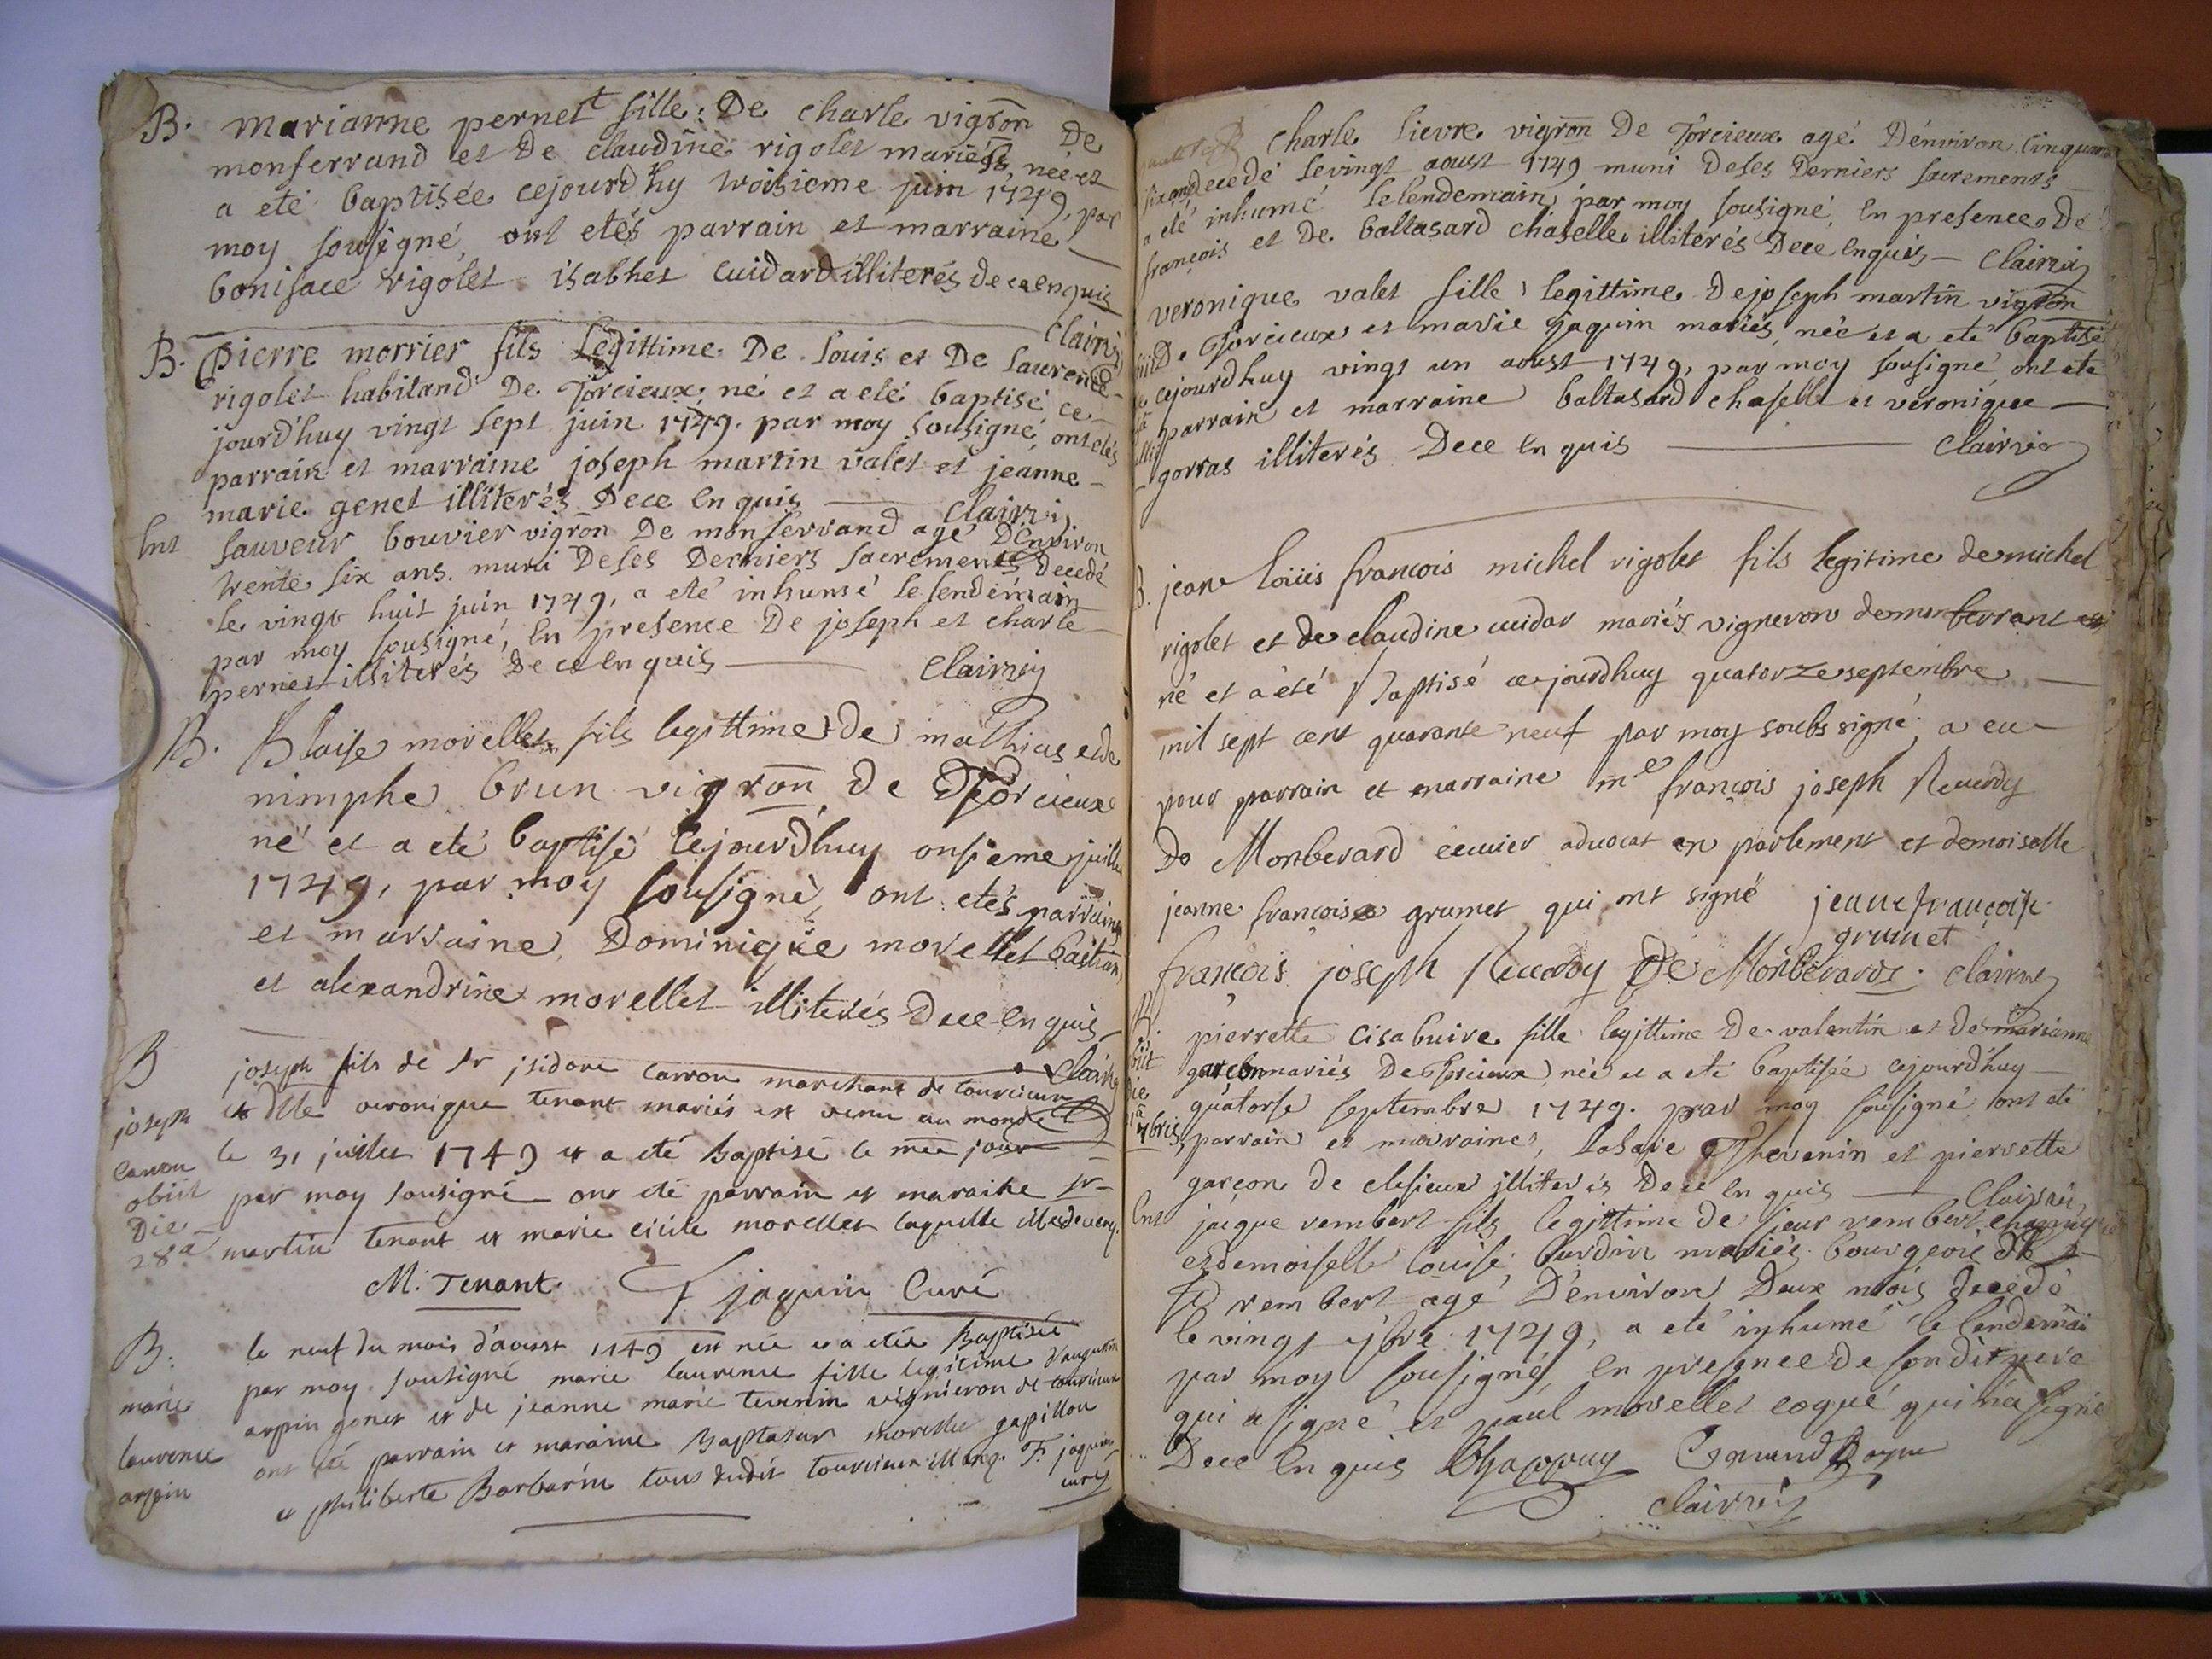 B. marianne pernet fille De charle vigron De
monferrand et De claudine rigolet mariés, née et
a eté baptisée cejourdhy troisieme juin 1749, par
moy sousigné, ont etés parrain et marraine
boniface rigolet isabhet cuidard illiterés de ce enquis
Clairvi
B. Pierre morrier fils Legittime De Louis et De Laurence
rigolet habitand De Torcieux, né et a eté baptisé ce
jourd'huy vingt sept juin 1749. par moy sousigné, ont etés
parrain et marraine joseph martin valet et jeanne
marie genet illiterés De ce enquis Clairvi
Ent Sauveur bouvier vigron De monferrand agé D'environ
trente six ans. muni De ses Derniers Sacrements decedé
le vingt huit juin 1749, a eté inhumé le lendemain
par moy sousigné, En presence De joseph et charle
pernet illiterés De ce enquis Clairvi
B. Blaise morellet fils legittime de mathias et de
nimphe brun vigron de Torcieux
né et a eté baptisé cejourd'huy onsieme juillet
1749, par moy sousigné, ont etés parrain
et marraine, Dominique morellet
et alexandrine morellet illiterés De ce enquis
Clairvi
B joseph fils de sr jsidore carron marchant de tourcieux
joseph et dlle veronique tenant mariés est venu au monde
carron le 31 juillet 1749 et a eté Baptisé le mee jour
obiit par moy sousigné ont eté parrain et maraine sr
Die
28a martin tenant et marie cicile morellet laquelle
M. Tenant F jaquin Curé
B. le neuf du mois d'aoust 1749 est née et a etée Baptisée
marie par moy sousigné marie laurence fille legitime d'augustin
laurence arpin genet et de jeanne marie tevenin vigneron de tourcieux
arpin ont eté parrain et maraine Baptasar morellet papillon
et philiberte Barbarin tous dudit tourcieux ill enq. F. jaquin
curé
Charle Lievre vigron De Torcieux agé D'environ cinquante
six ans decedé le vingt aoust 1749 muni De ses Derniers Sacrements
a eté inhumé le lendemain, par moy sousigné, En presence De
françois et De baltasard chaselle illiterés De ce enquis Clairvi
veronique valet fille legittime De joseph martin vigron
De Torcieux et marie jaquin mariés, née et a eté baptisé
cejourdhuy vingt un aoust 1749, par moy sousigné, ont eté
parrain et marraine baltasard chaselle et veronique
gorras illiterés De ce enquis Clairvi
B. jean loüis francois michel rigolet fils legitime de michel
rigolet et de claudine cuidar mariés vigneron demonferrant
né et a été baptisé cejourdhuy quatorze septembre
mil sept cent quarante neuf par moy soubs signé, a eu
pour parrain et marraine me françois joseph Reverdy
De Monberard écuier advocat en parlement et demoiselle
jeanne francoise grumet qui ont signé jeanne françoise
grumet
françois joseph Reverdy De Monbérard. Clairvi
B. pierrette cisabuire fille legittime De valentin et De marianne
obiit garçon mariés De Torcieux née et a eté baptisée cejourd'huy
die quatorse septembre 1749. par moy sousigné, ont eté
7bris parrain et marraine, Lasare Thevenin et pierrette
garçon de clesieux illiterés De ce enquis Clairvi
Ent jaque rembert fils legittime de sieur rembert chapuy
et demoiselle louise burdin mariés bourgeois de St
rembert agé D'environ Deux mois decedé
le vingt 7bre 1749, a eté inhumé le lendemain
par moy sousigné, en presence de son dit pere
qui a signé et paul morellet coqué qui n'a signé
De ce enquis Chappuy
Clairvi